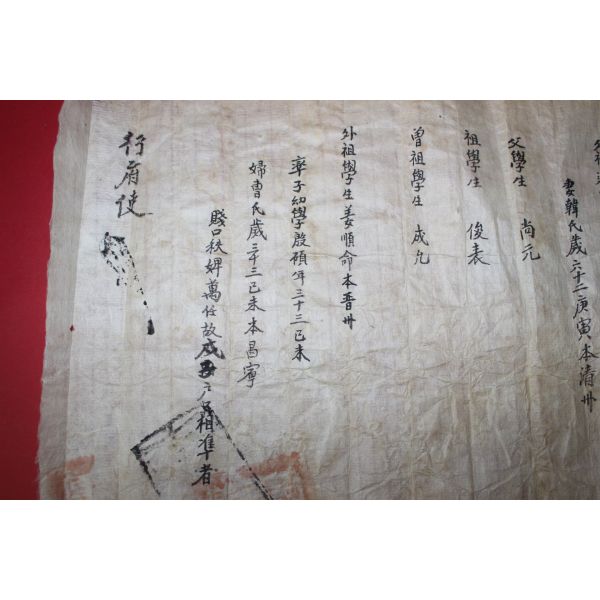 妻韓氏歲六十二庚寅本清州
父學生 尚元
祖學生 俊表
曾祖學生 成九
外祖學生姜順命本晋州
率子幼學殷禎年三十三己未
婦曺氏歲三十三己未本昌寧
賤口秩婢萬任故戊子戶口相準者
行府使